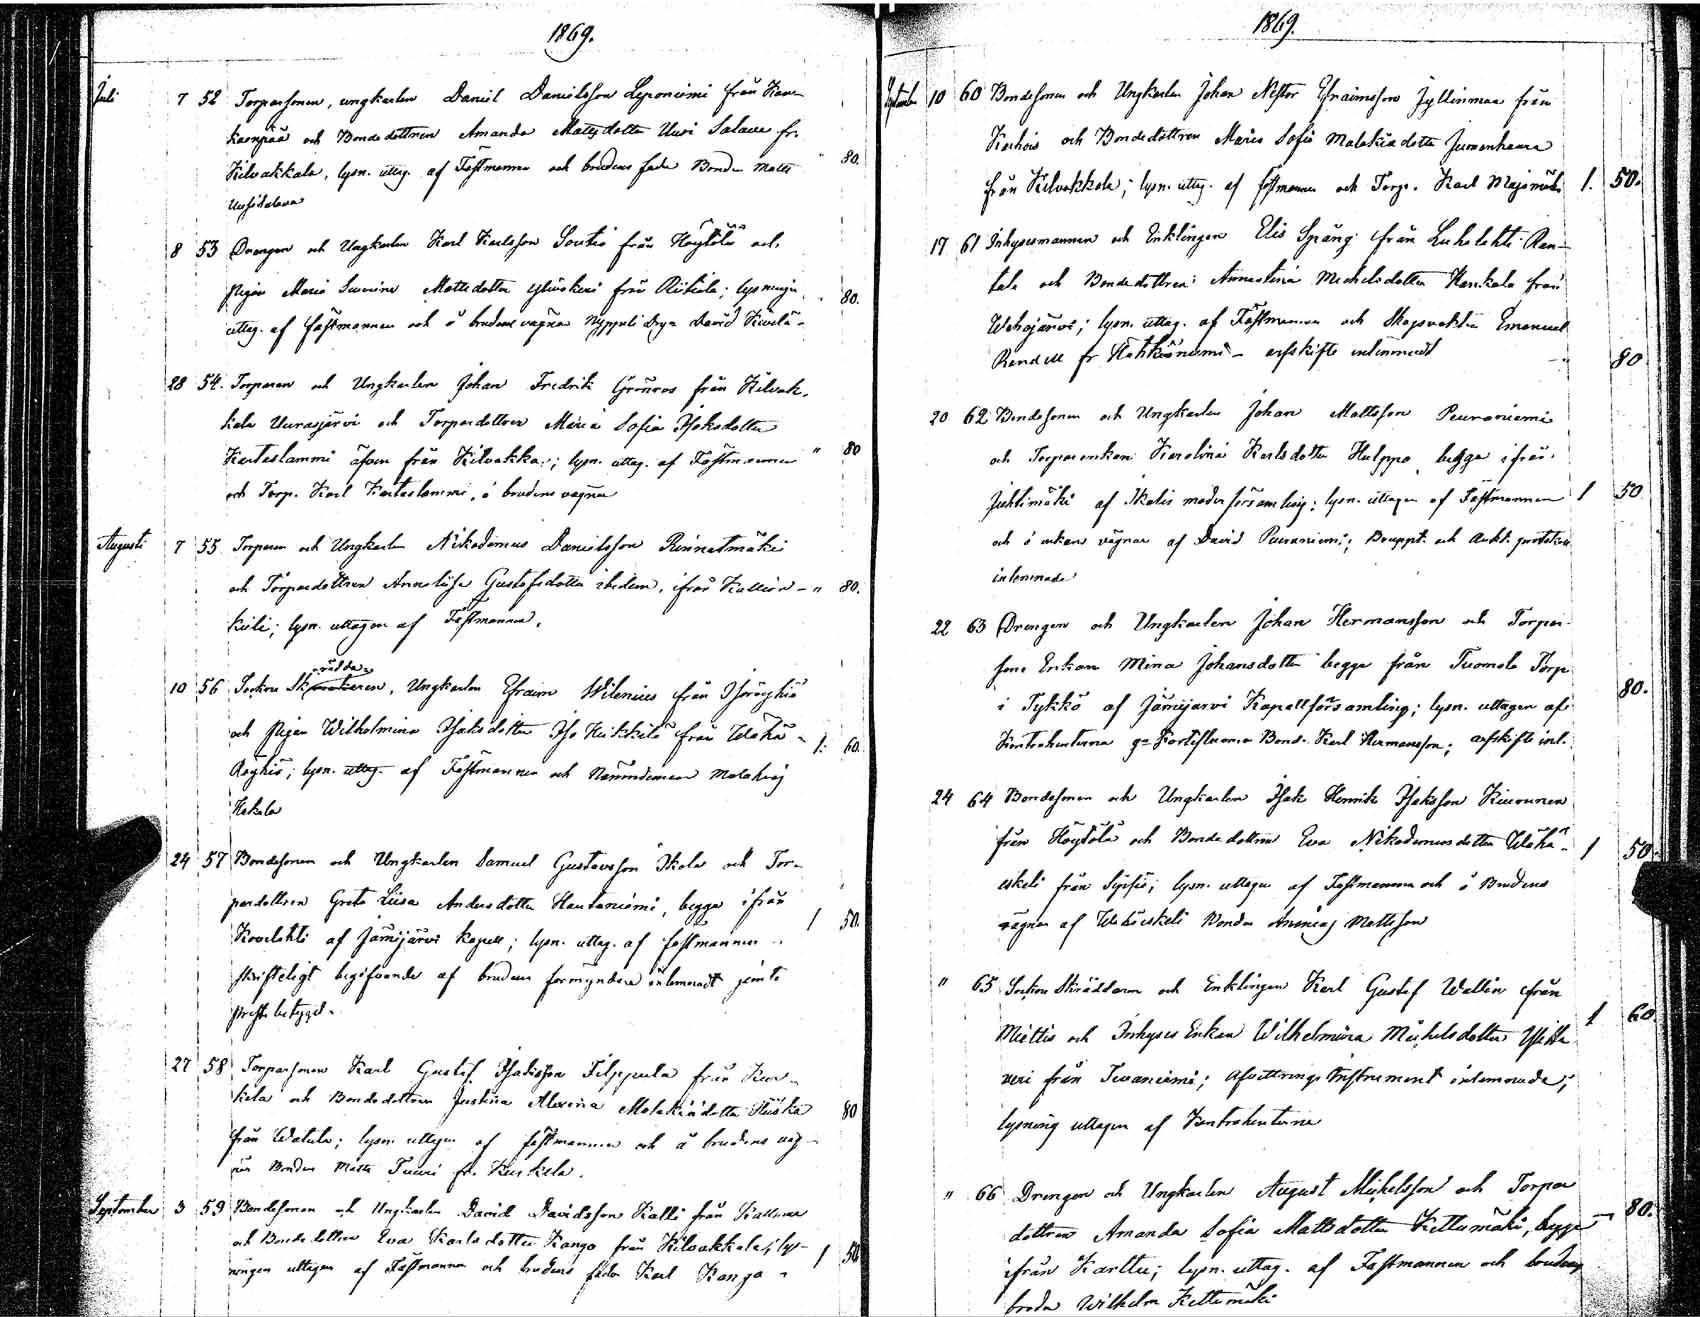 1869.
Juli 7 52 Torparsonen, ungkarlen Daniel Danielsson Leponiemi från Kan-
kaanpää och Bondedottren Amanda Mattsdotter Uusi Salava fr.
Kilvakkala, lysn. uttag. af Fästmannen och brudens fader Bonden Matts " 80.
Uusisalava
8 53 Drengen och Ungkarlen Karl Karlsson Soutio från Höytölä och
pigan Maria Mattsdotter från Riitiala; lysningen
uttag. af fästmannen och å brudens vägnar David " 80.
28 54. Torparen och Ungkarlen Johan Fredrik Grönroos från Kilvak-
kala Uurasjärvi och Torpardottren Maria Sofia Isaksdotter
Kartaslammi äfven från Kilvakka.; lysn. uttag. af Fästmannen " 80
och Torp. Karl Kartaslammi, å brudens vägnar
Augusti 7 55 Torparen och Ungkarlen Nikodemus Danielsson Rinnetmäki
och Torpardottren Annaliisa Gustafsdotter ibidem, ifrån - " 80.
lysn. uttagen af Fästmannen.
räddar
10 56 Socken Sk, Ungkarlen Efraim Wilenius från Isoröyhiö
och Pigan Wilhelmina Isaksdotter Iso Heikkilä från Wähä - 1. 60.
Röyhiö; lysn. uttag. af Fästmannen och Nämndeman Malakias
Hakala
24 57 Bondesonen och Ungkarlen Samuel Gustavsson Skola och Tor-
pardottren Greta Liisa Andersdotter Hautaniemi, begge ifrån
Kovelahti af Jämijärvi kapell; lysn. uttag. af fästmannen 1 50.
skrifteligt begifvande af brudens förmyndare inlemnadt jemte
prestbetyget.
27 58 Torparsonen Karl Gustaf Isaksson Filppula från Kur-
kela och Bondedottren Justina Alexina Malakiasdotter Hiiskä 80
från Watula; lysn. uttagen af fästmannen och å brudens väg-
nar Bonden Matts Tuuri fr. Kurkela.
September 3 59 Bondesonen och Ungkarlen David Davidsson Kalli från
och Bondedottren Eva Karlsdotter Kanga från Kilvakkala; lys-
ningen uttagen af Fästmannen och brudens fader Karl Kanga 1 50
1869.
September 10 60 Bondesonen och Ungkarlen Johan Nestor Efraimsson Jyllinmaa från
Karhois och Bondedottren Maria Sofia Malakiasdotter Jumenhaara
från Kilvakkala; lysn. uttag. af fästmannen och Torp. Karl Majamäki 1. 50.
17 61 Inhysesmannen och Enklingen Elis Spång från Luhalahti Ran-
tala och Bondedottren Annastina Michelsdotter Hankala från
Wehajärvi; lysn. uttag. af Fästmannen och Skogsvaktaren Emanuel
Randell fr - arfskifte inlemnadt - 80
20 62 Bondesonen och Ungkarlen Johan Mattsson Peuraniemi
och Torparenkan Karolina Karlsdotter Hulppo, begge ifrån
Juhtimäki af Ikalis moderförsamling; lysn. uttagen af Fästmannen 1 50
och å enkans vägnar af David Peuraniemi; Bouppt. och Aukt. protokoll
inlemnade
22 63 Drengen och Ungkarlen Johan Hermansson och Torpar-
sons Enkan Mina Johansdotter begge från Tuomola Torp
i Tykkö af Jämijärvi Kapellförsamling; lysn. uttagen af 80.
Kontrahenterna Bond. Karl Hermansson; arfskifte inl.
24 64 Bondesonen och Ungkarlen Isak Henrik Isaksson Kiuronen
från Höytölä och Bondedottren Eva Nikodemusdotter Wähä- 1 50.
eskeli från Sipsiö; lysn. uttagen af Fästmannen och å Brudens
vägnar af Wähäeskeli Bonden Ananias Mattsson
" 65 Socken Skräddaren och Enklingen Karl Gustaf Wallin ifrån
Miettis och Inhyses Enkan Wilhelmina Michelsdotter 1 60.
från Tevaniemi; Afvittrings Instrument inlemnade;
lysning uttagen af Kontrahenterna
" 66 Drengen och Ungkarlen August Michelsson och Torpar
dottren Amanda Sofia Mattsdotter Kettumäki, begge - 80.
ifrån Karttu; lysn. uttag. af Fästmannen och brudens
broder Wilhelm Kettumäki